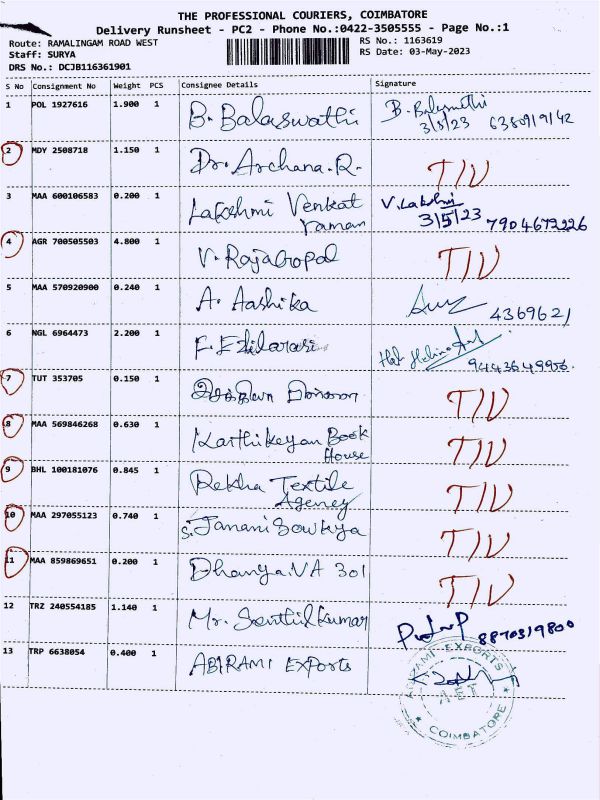 THE PROFESSIONAL COURIERS, COIMBATORE
Delivery Runsheet - PC2 - Phone No.:0422-3505555 - Page No.:1
Route: RAMALINGAM ROAD WEST
RS No.: 1163619
Staff: SURYA
RS Date: 03-May-2023
DRS No.: DCJB116361901
S No Consignment No Weight PCS Consignee Details Signature
1 POL 1927616 1.900 1 B. Balaswathi
3/5/23 6380919142
2 MDY 2508718 1.150 1 Dr. Archana.R. T/V
3 MAA 600106583 0.200 1 Lakshmi Venkat V. Lakshmi
raman 3/5/23 7904672226
4 AGR 700505503 4.800 1 V. Rajagopal T/V
5 MAA 570920900 0.240 1 A. Aashika 4369621
6 NGL 6964473 2.200 1 F. Ezhilarasi
7 TUT 353705 0.150 1 T/V
8 MAA 569846268 0.630 1 Karthikeyan Book T/V
House
9 BHL 100181076 0.845 1 Rekha Textile T/V
Agency
10 MAA 297055123 0.740 1 S. Janani Sowkya T/V
11 MAA 859869651 0.200 1 Dhanya.VA 301 T/V
12 TRZ 240554185 1.140 1 Mr. Senthil Kumar 8870319800
13 TRP 6638054 0.400 1 ABIRAMI EXPORTS
EXPORTS
COIMBATORE